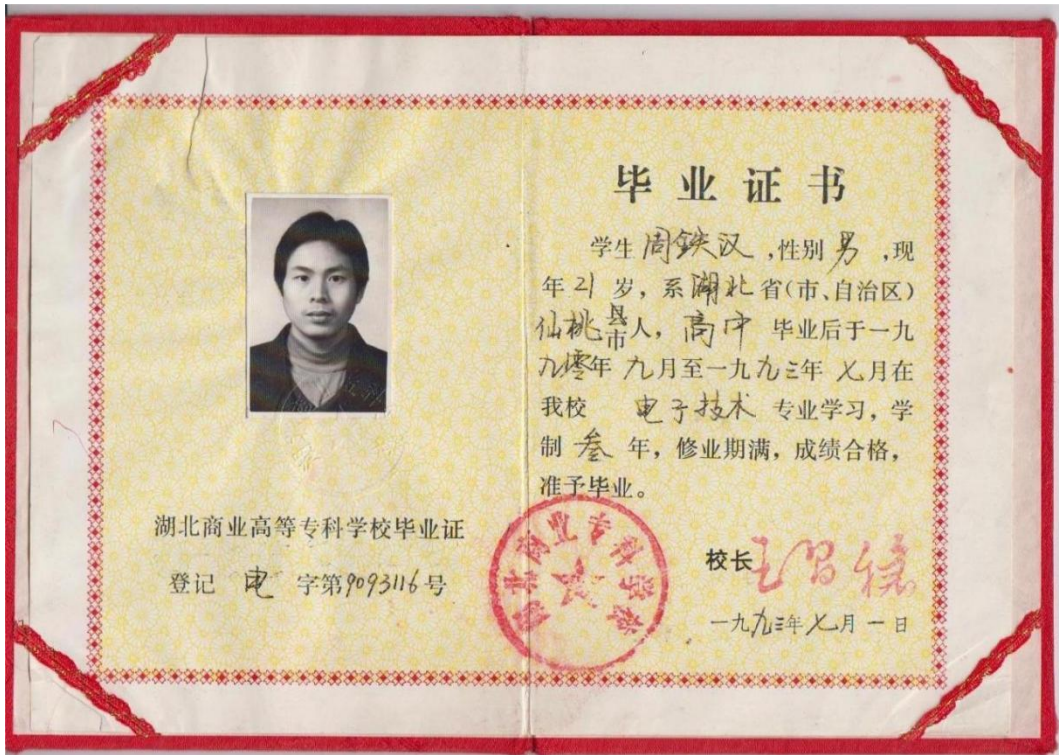 湖北商业高等专科学校毕业证
登记 电 字第9093116号
毕业证书
学生周铁汉,性别男,现
年21岁,系湖北省(市、自治区)
仙桃县市人,高中 毕业后于一九
九零年九月至一九九三年七月在
我校 电子技术 专业学习,学
制 叁 年,修业期满,成绩合格,
准予毕业。
校长
一九九三年七月一日